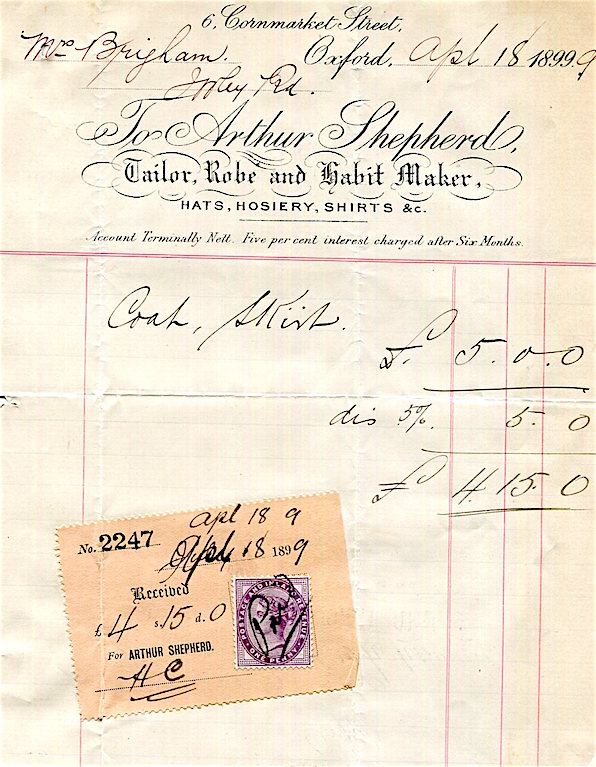 6, Cornmarket Street,
Mrs Brigham. Oxford, Apl 18 1899
Iffley Rd.
To Arthur Shepherd,
Tailor, Robe and Habit Maker,
HATS, HOSIERY, SHIRTS &c.
Account Terminally Nett. Five per cent interest charged after Six Months.
Coat, Skirt.
£ 5. 0. 0
dis 5%. 5. 0
£ 4. 15. 0
apl 18 9
No. 2247
18 1899
Received
£ 4 s. 15 d. 0
For ARTHUR SHEPHERD.
HC
POSTAGE AND INLAND REVENUE